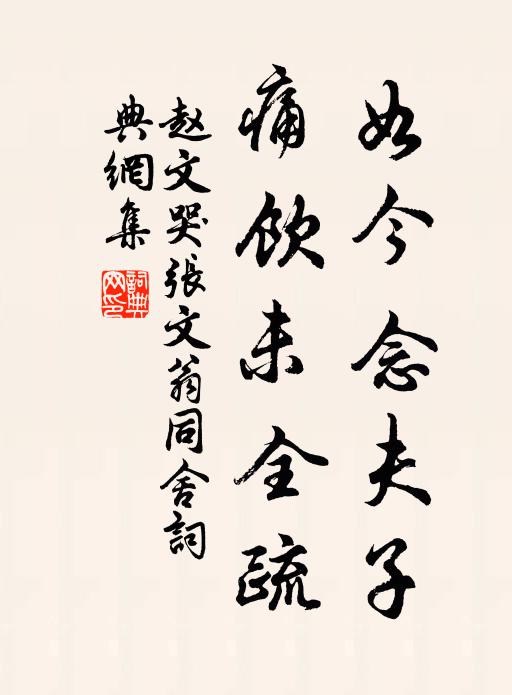 如今念夫子
痛飲未全疏
赵文哭張文翁同舍詞
典網集
詞典網印